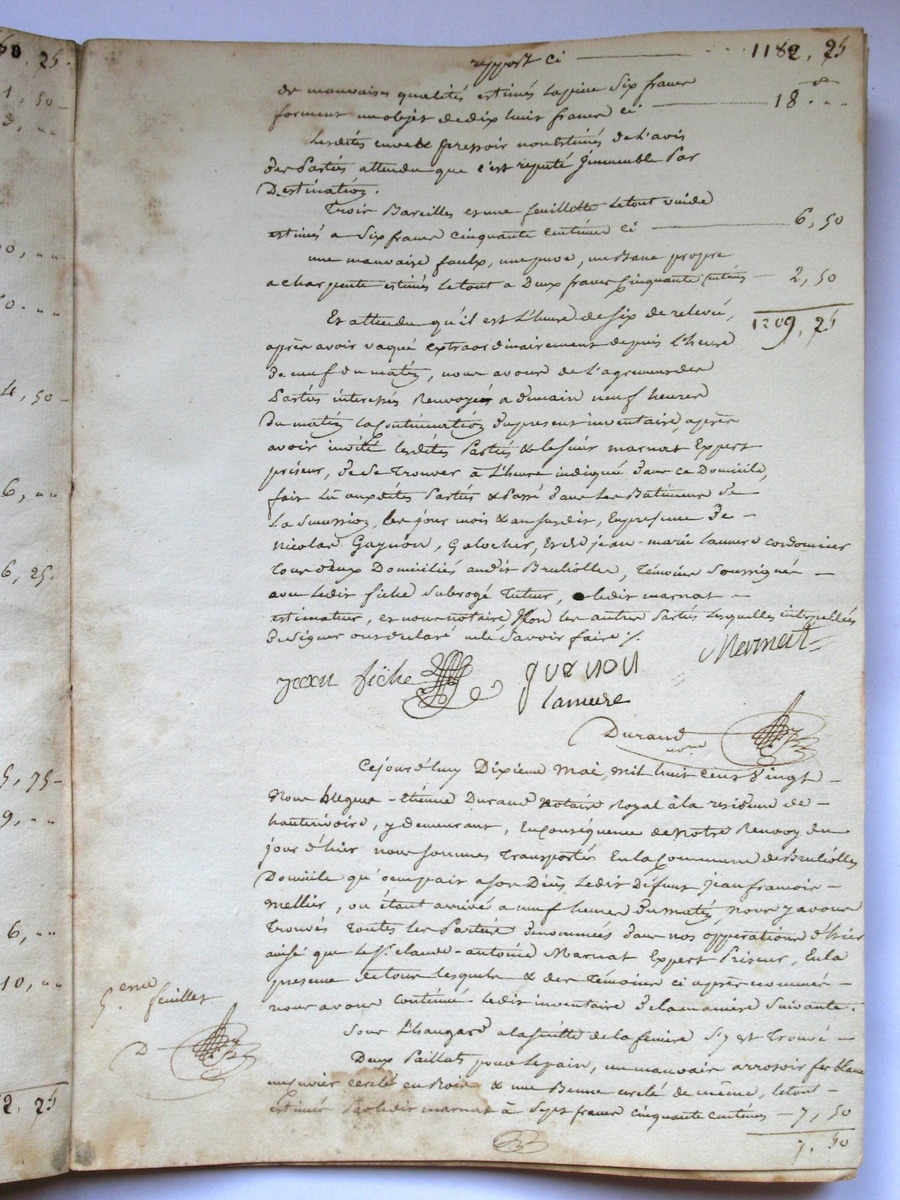 report ci 1182, 25
de mauvaises qualités estimés la pièce Six francs
forment un objet de dix huit francs ci 18. ..
Lesdites cuve & pressoir non Estimés de l'avis
des Parties attendu que c'est reputé Jmmeuble Par
Destination.
Trois Bareilles et une feuillette le tout vuide
estimés a Six francs cinquante centimes ci 6, 50
une mauvaise faulx, une propre
a charpente estimés le tout a Deux francs Cinquante centimes 2, 50
1209, 25
Et attendu qu'il est L'heure de Six de relevée,
après avoir vaqué extraordinairement depuis L'heure
de neuf du matin, nous avons de L'agrement des
Parties interessés Renvoyés a demain neuf heures
Du matin la Continuation du present inventaire après
avoir invité lesdites Parties & le Sieur marnat Expert
priseur, de Se Trouver à L'heure indiqué dans ce Domicile,
fait Lû auxdites Parties & Passé dans les Batiments de
La Succession, les jour mois & an susdit, En presence de
Nicolas Gaynon, Galocher, Et de jean-marie Lamure cordonnier
Tous deux Domiciliés audit Brullolle, Témoins Soussignés
avec ledit fiche Subrogé Tuteur, ledit marnat
estimateur, et nous notaire, Non les autres Parties Lesquelles interpellées
de Signer ont declaré ne le Savoir faire ./.
jean fiche guenon Marnat
Lamure
Durand
nore
Cejourd'huy Dixième Mai, Mil huit cent Vingt
Nous hugues-Etienne Durand Notaire Royal à la residence de
hauterivoire, y demeurant, En conséquence de Notre Renvoy du
jour d'hier nous sommes Transportés En la Commune de Brullolles
Domicile qu'occupait a son Décès Ledit Défunt Jean francois
Mellier, où étant arrivé a neuf heures Du matin, nous y avons
Trouvés Toutes les Parties denommées dans nos opperations d'hier
ainsi que le Sr. claude-antoine Marnat Expert Priseur, En la
presence de tous lesquels & des Témoins ci après nommés
nous avons Continué ledit inventaire de la maniere Suivante.
Sous L'hangard a la Suitte de la feniere S'y est Trouvé
Deux Paillats pour le pain, un mauvais arrosoir fer blanc
un cuvier cerclé en bois & une Benne cerclé de même, le tout
estimés Par ledit marnat à Sept francs cinquante Centimes 7, 50
7. 50
5eme feuillet
D